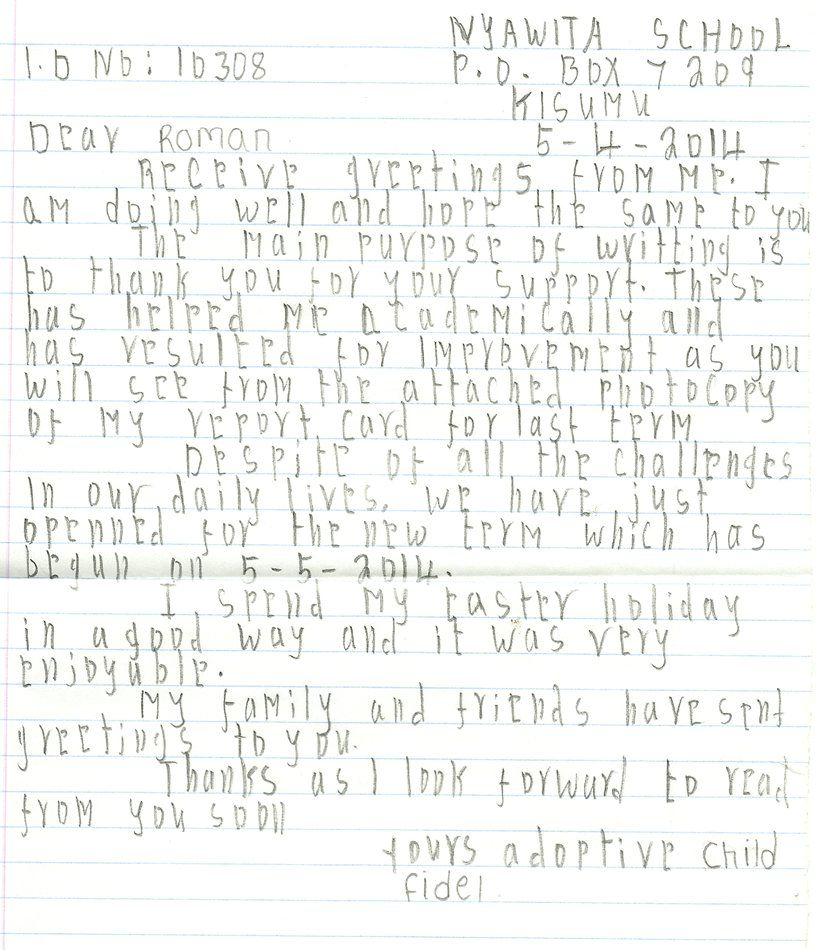 NYAWITA SCHOOL
I.D NO: 10308
P.O. BOX 7209
KISUMU
Dear ROMAN
5-4-2014
Receive greetings from me. I
am doing well and hope the same to you
The main purpose of writting is
to thank you for your support. These
has helped me academically and
has resulted for improvement as you
will see from the attached photocopy
of my report card for last term
Despite of all the challenges
In our daily lives, we have just
openned for the new term which has
begun on 5-5-2014.
I spend my easter holiday
in a good way and it was very
enjoyable.
My family and friends have sent
greetings to you.
Thanks as I look forward to read
from you soon
yours adoptive child
fidel